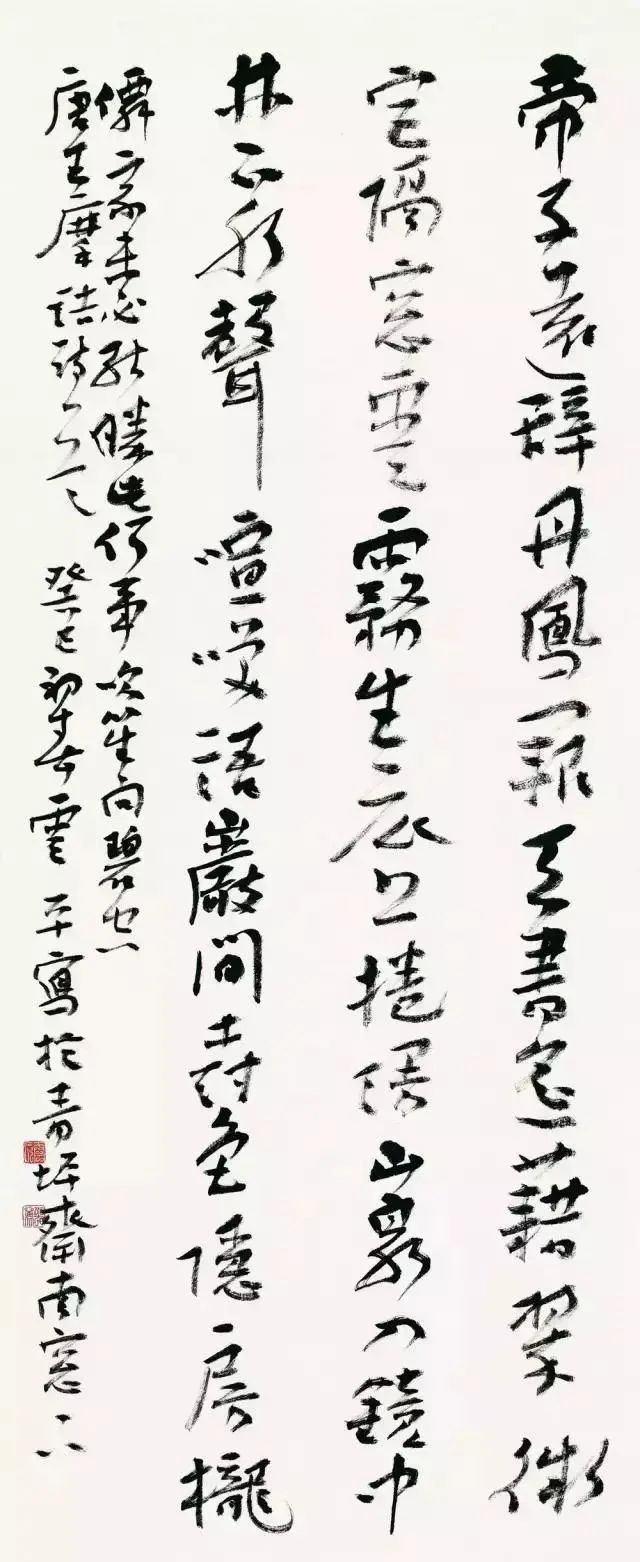 帝子遠辭丹鳳闕天書遙藉翠微
宮隔窗雲霧生衣上捲幔山泉入鏡中
林下水聲喧咲語巖間樹色隱房櫳
僊家未必能勝此何事吹笙向碧空
唐王摩詰詩一首 癸巳初春雲平寫於青坪齋南窗下